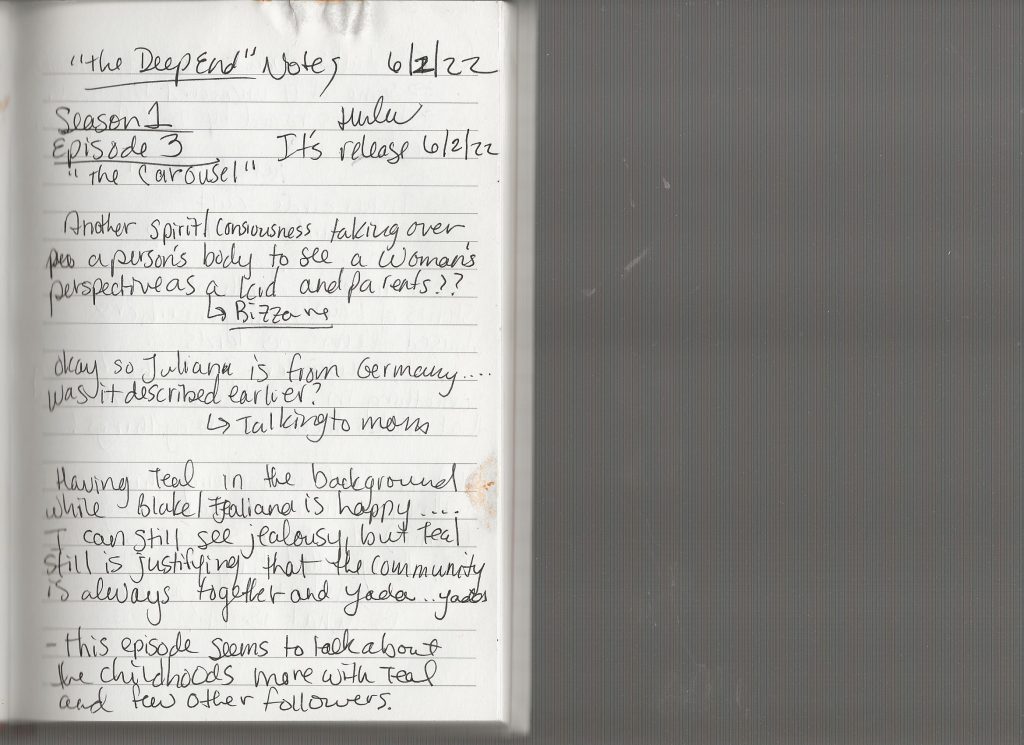 "the Deep End" Notes 6/2/22
Season 1 Hulu
Episode 3 It's release 6/2/22
"The Carousel"
Another spirit/consiousness taking over
a person's body to see a woman's
perspective as a kid and parents??
↳ Bizzare
okay so Juliana is from Germany....
was it described earlier?
↳ Talking to mom
Having Teal in the background
while Blake/Juliana is happy....
I can still see jealousy, but Teal
still is justifying that the community
is always together and yada..yada
- this episode seems to talk about
the childhoods more with Teal
and few other followers.